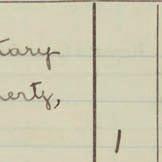 tary
herty,
1